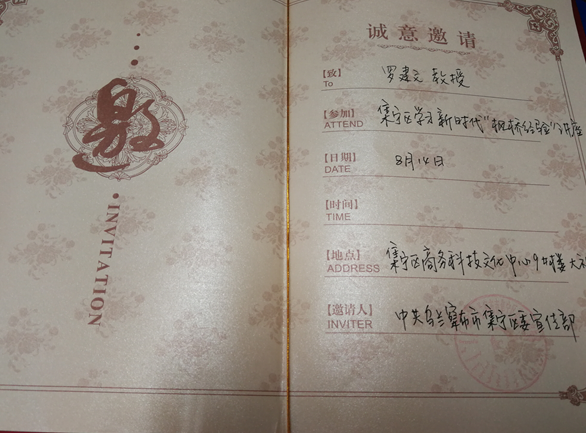 邀
INVITATION
诚意邀请
【致】 罗建文 教授
To
【参加】 集宁区学习新时代"枫桥经验"讲座
ATTEND
【日期】 8月14日
DATE
【时间】
TIME
【地点】 集宁区商务科技文化中心9楼大
ADDRESS
【邀请人】 中共乌兰察布市集宁区委宣传部
INVITER